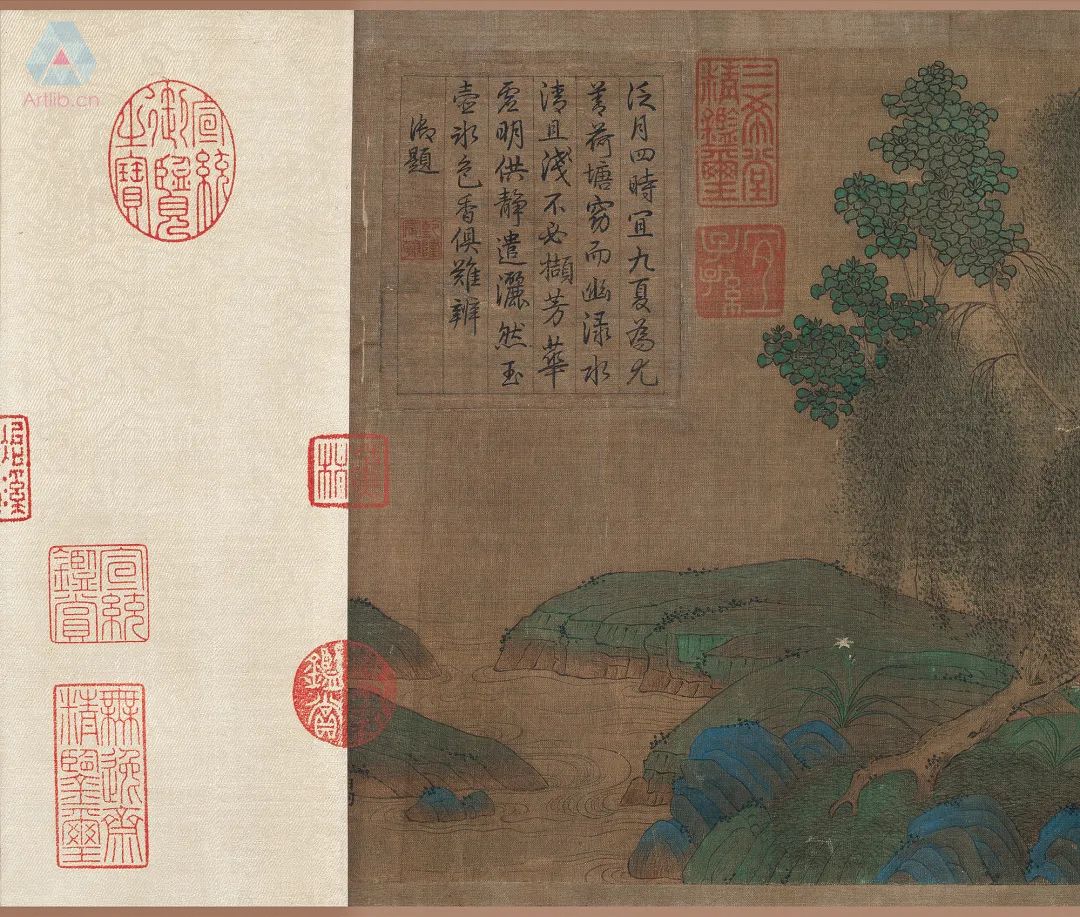 三希堂精鑑璽
宜子孫
泛月四時宜九夏為尤
善荷塘窈而幽渌水
清且淺不必擷芳華
虛明供靜遣灑然玉
壺冰色香俱難辨
御題
宣統御覽之寶
鑑賞
宣統鑑賞
無逸齋精鑑璽
Artlib.cn